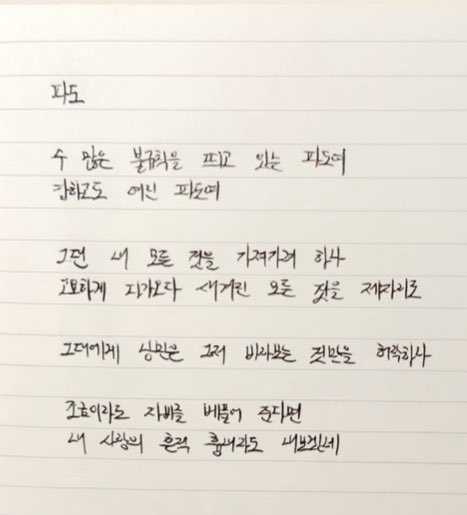 파도
수 많은 불규칙을 띄고 있는 파도여
강하고도 여린 파도여
그댄 내 모든 것을 가져가려 하나
고요하게 다가오다 새겨진 모든 것을 제자리로
그대에게 상민은 그저 바라보는 것만을 허락하나
조금이라도 자비를 베풀어 준다면
내 사랑의 흔적 흉내라도 내보겠네